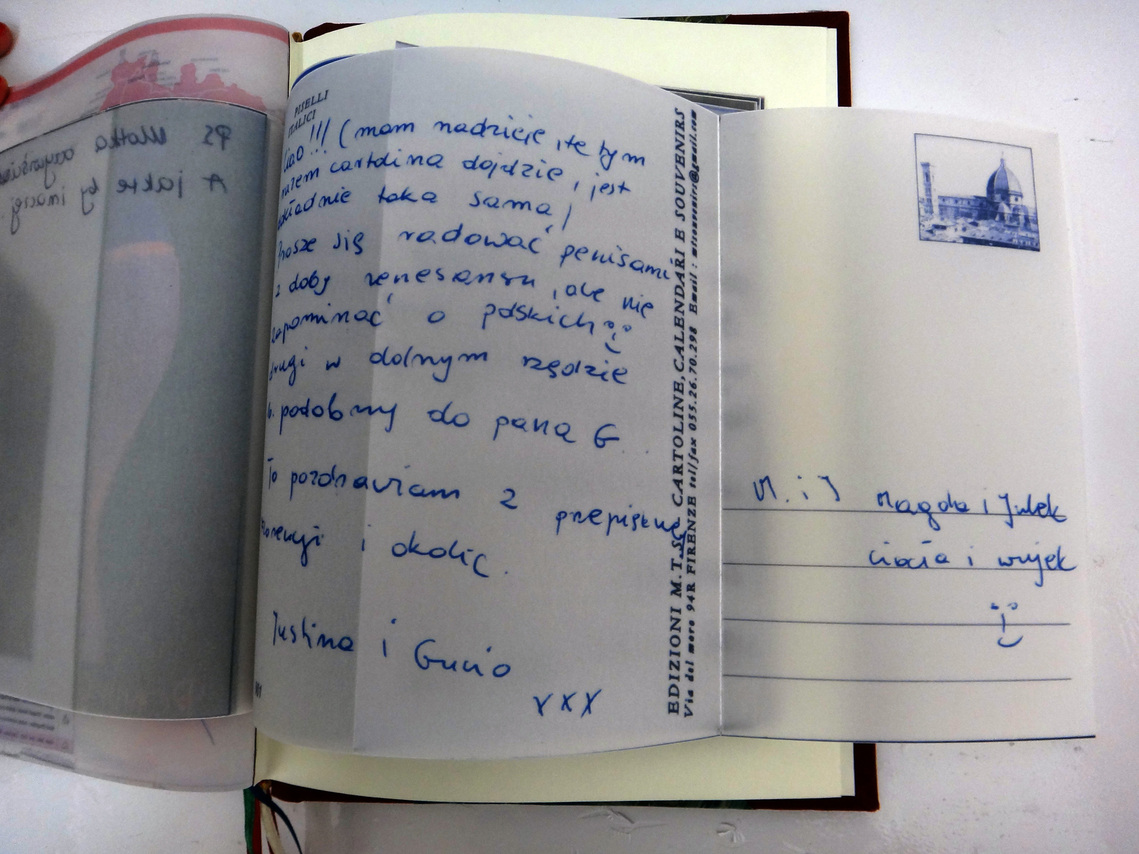 PISELLI
ITALICI
Ciao !!! (mam nadzieję, że tym
razem cartolina dojdzie, jest
dokładnie taka sama)
Proszę się radować penisami
z doby renesansu, ale nie
zapominać o polskich :)
drugi w dolnym rzędzie
b. podobny do pana G.
To pozdrawiam z przepięknej
Florencji i okolic.
Justina i Gucio
xxx
EDIZIONI M.T. CARTOLINE, CALENDARI E SOUVENIRS
Via del moro 94R FIRENZE tel/fax 055.26.70.298 Email : mtsouvenirs@gmail.com
M. i J Magda i Julek
ciocia i wujek
:)
PS Matka
A jakże by inaczej.